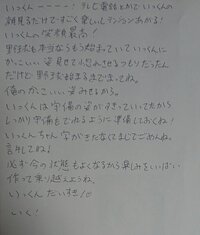 いっくんーーーー！テレビ電話とかでいっくんの
顔見るだけですごく楽しいしテンションあがる！
いっくんの笑顔最高！
野球も本当ならもう始まっていていっくんに
かっこいい姿見せて小惑させるつもりだったん
だけど 野球も始まるまでまってね。
俺のかっこいい姿みせるから。
いっくんは守備の姿がすきっていってたから
しっかり守備もでれるように準備しておくね！
いっくんちゃん字がきたなくてまじでごめんね。
許してね！
必ず今の状態もよくなるから楽しみをいっぱい
作って乗り越えようね
いっくんだいすき！
いく！